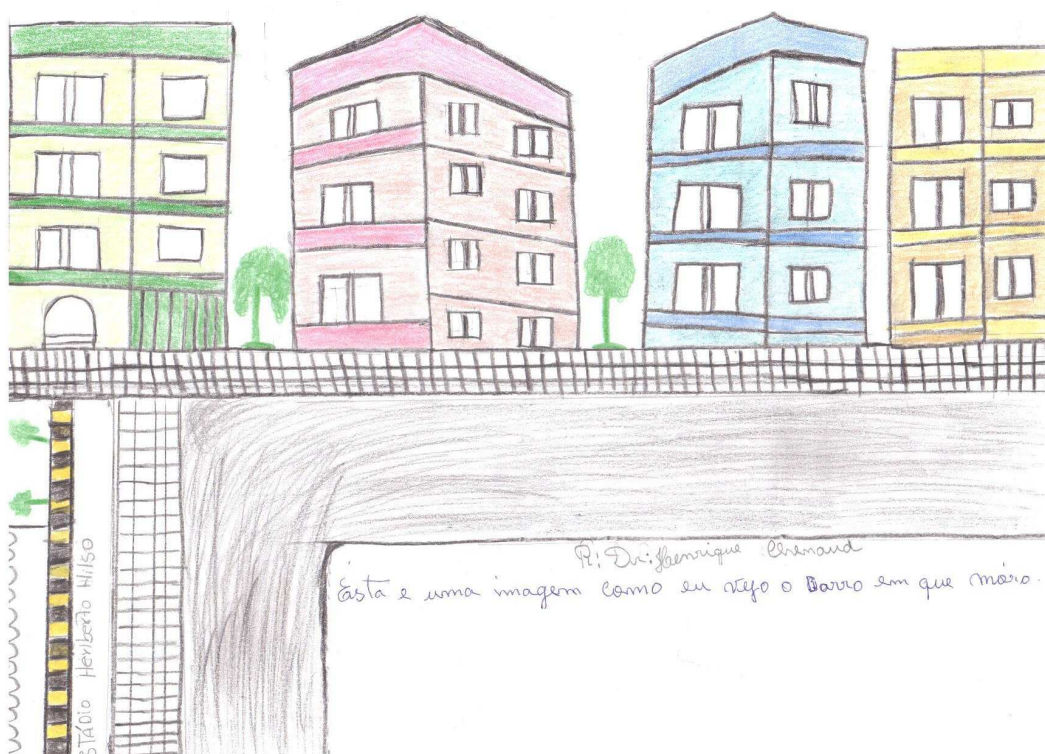 R: Dr: Henrique Chenaud
Esta e uma imagem como eu vejo o barro em que móro.
STÁDIO Heriberto Hilso